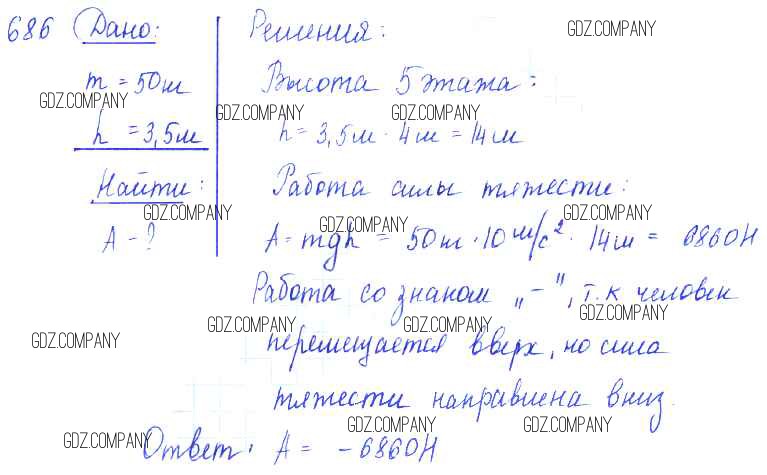 686 Дано:
m = 50кг
h = 3,5м
Найти:
A - ?
Решения:
Высота 5 этажа:
h = 3,5м · 4м = 14м
Работа силы тяжести:
A = mgh = 50кг · 10 м/с² · 14м = 6860Н
Работа со знаком „-", т.к человек
перемещается вверх, но сила
тяжести направлена вниз.
Ответ: A = -6860Н
GDZ.COMPANY
GDZ.COMPANY
GDZ.COMPANY
GDZ.COMPANY
GDZ.COMPANY
GDZ.COMPANY
GDZ.COMPANY
GDZ.COMPANY
GDZ.COMPANY
GDZ.COMPANY
GDZ.COMPANY
GDZ.COMPANY
GDZ.COMPANY
GDZ.COMPANY